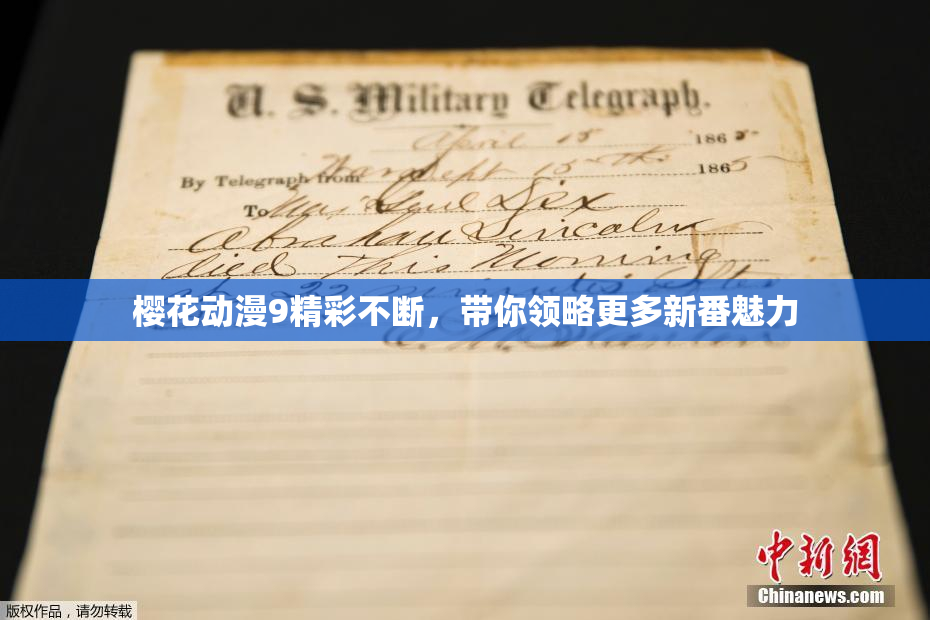 U. S. Military Telegraph.
April 15 1865
By Telegraph from War Dept 15th 1865
To Maj Genl Dix
Abraham Lincoln
died This Morning
at 22 minutes after
樱花动漫9精彩不断，带你领略更多新番魅力
E. M. Stanton
中新网
Chinanews.com
版权作品，请勿转载